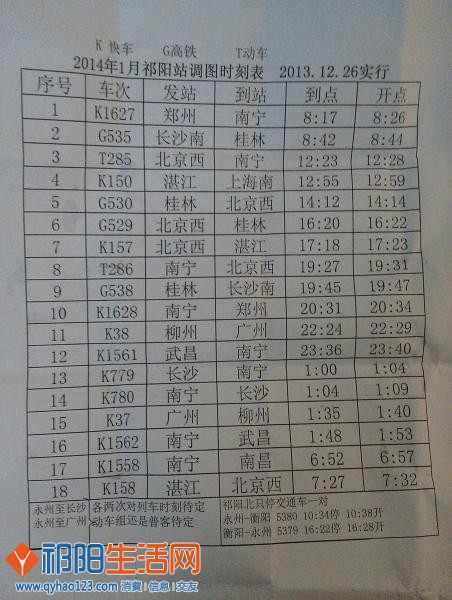 K 快车 G高铁 T动车
2014年1月祁阳站调图时刻表 2013.12.26实行
序号 车次 发站 到站 到点 开点
1 K1627 郑州 南宁 8:17 8:26
2 G535 长沙南 桂林 8:42 8:44
3 T285 北京西 南宁 12:23 12:28
4 K150 湛江 上海南 12:55 12:59
5 G530 桂林 北京西 14:12 14:14
6 G529 北京西 桂林 16:20 16:22
7 K157 北京西 湛江 17:18 17:23
8 T286 南宁 北京西 19:27 19:31
9 G538 桂林 长沙南 19:45 19:47
10 K1628 南宁 郑州 20:31 20:34
11 K38 柳州 广州 22:24 22:29
12 K1561 武昌 南宁 23:36 23:40
13 K779 长沙 南宁 1:00 1:04
14 K780 南宁 长沙 1:04 1:09
15 K37 广州 柳州 1:35 1:40
16 K1562 南宁 武昌 1:48 1:53
17 K1558 南宁 南昌 6:52 6:57
18 K158 湛江 北京西 7:27 7:32
永州至长沙 各两次对列车时刻待定
永州至广州 动车组还是普客待定
祁阳北只停交通车一对
永州-衡阳 5380 10:34停 10:38开
衡阳-永州 5379 16:22停 16:28开
祁阳生活网
www.qyhao123.com 消费 信息 交友